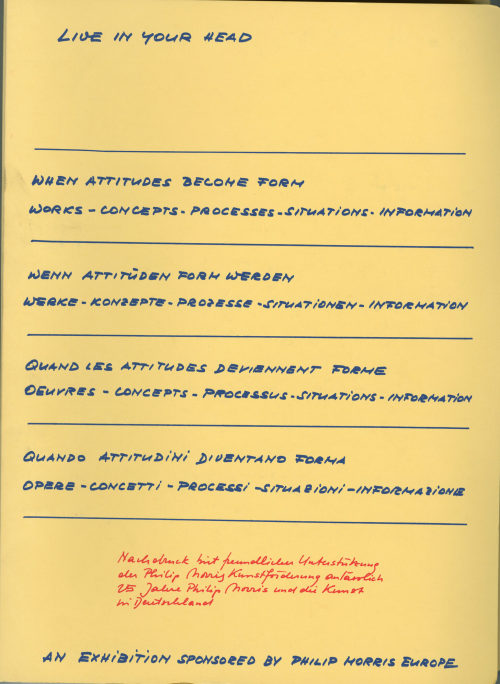 LIVE IN YOUR HEAD
WHEN ATTITUDES BECOME FORM
WORKS – CONCEPTS – PROCESSES – SITUATIONS – INFORMATION
WENN ATTITÜDEN FORM WERDEN
WERKE – KONZEPTE – PROZESSE – SITUATIONEN – INFORMATION
QUAND LES ATTITUDES DEVIENNENT FORME
OEUVRES – CONCEPTS – PROCESSUS – SITUATIONS – INFORMATION
QUANDO ATTITUDINI DIVENTANO FORMA
OPERE – CONCETTI – PROCESSI – SITUAZIONI – INFORMAZIONE
Nachdruck mit freundlicher Unterstützung
der Philip Morris Kunstförderung anlässlich
25 Jahre Philip Morris und die Kunst
in Deutschland
AN EXHIBITION SPONSORED BY PHILIP MORRIS EUROPE